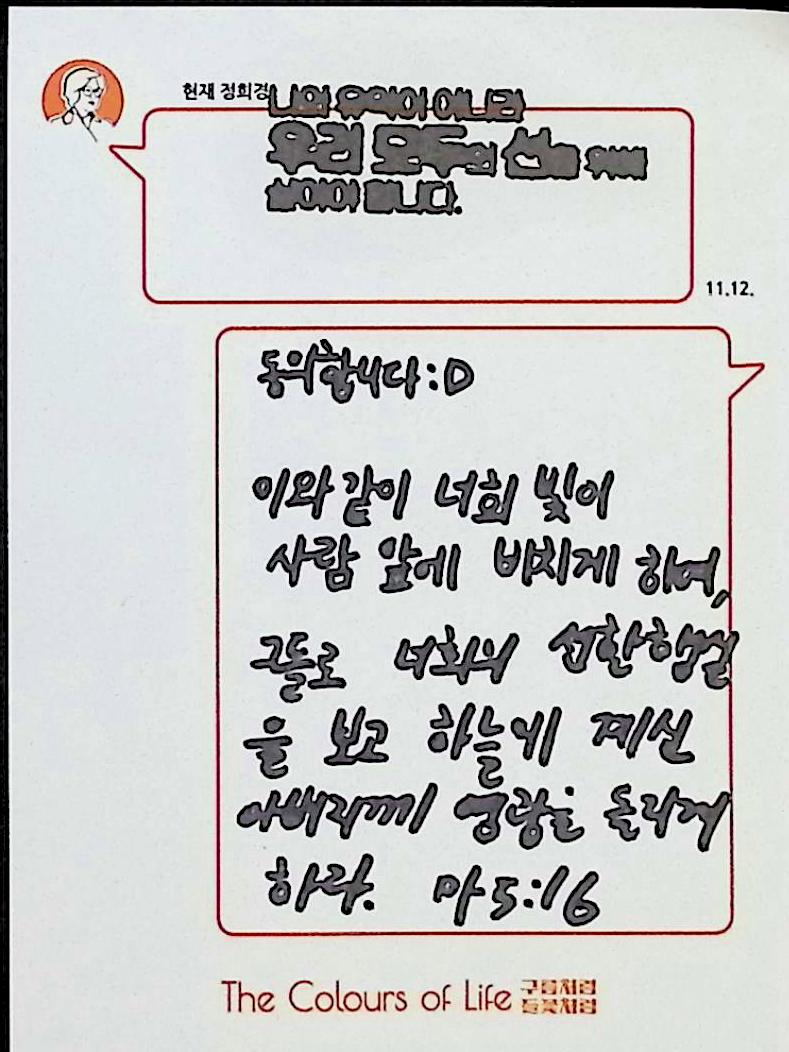 현재 정희경
나의 유익이 아니라
우리 모두의 선을 위해
살아야 합니다.
11.12.
동의합니다:D
이와 같이 너희 빛이
사람 앞에 비치게 하여,
그들로 너희의 선한 행실
을 보고 하늘에 계신
아버지께 영광을 돌리게
하라. 마5:16
The Colours of Life 구름처럼
들꽃처럼